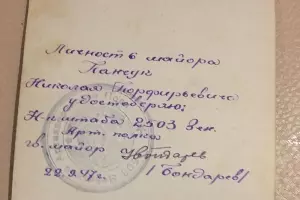 Личность майора
Панчук
Николая Порфирьевича
удостоверяю:
Н-к штаба 2503 Зен.
Арт. полка
гв. майор
22.9.47г. /Бондарев/